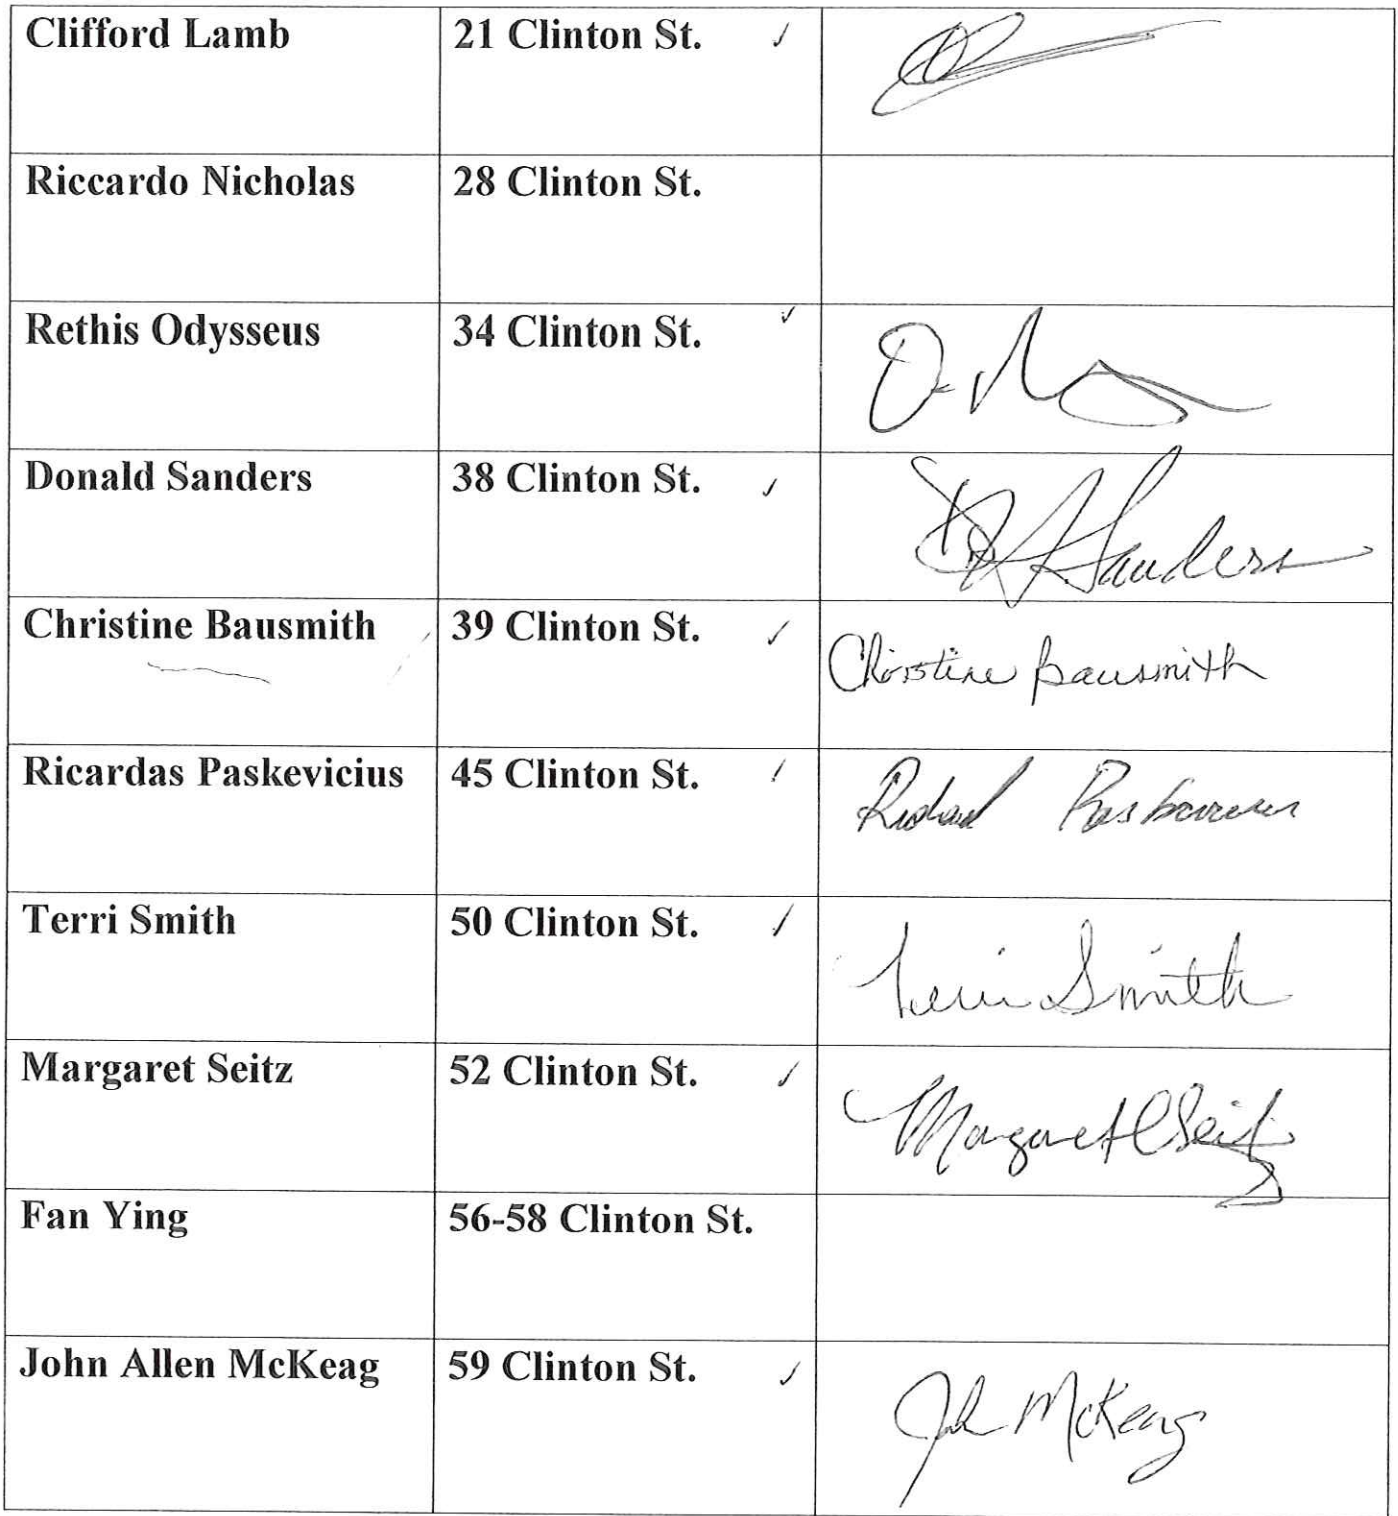 Clifford Lamb 21 Clinton St. ✓
Riccardo Nicholas 28 Clinton St.
Rethis Odysseus 34 Clinton St. ✓
Donald Sanders 38 Clinton St. ✓ Sanders
Christine Bausmith 39 Clinton St. ✓ Christine Bausmith
Ricardas Paskevicius 45 Clinton St. ✓ Richard
Terri Smith 50 Clinton St. ✓ Terri Smith
Margaret Seitz 52 Clinton St. ✓ Margaret C Seitz
Fan Ying 56-58 Clinton St.
John Allen McKeag 59 Clinton St. ✓ John McKeag